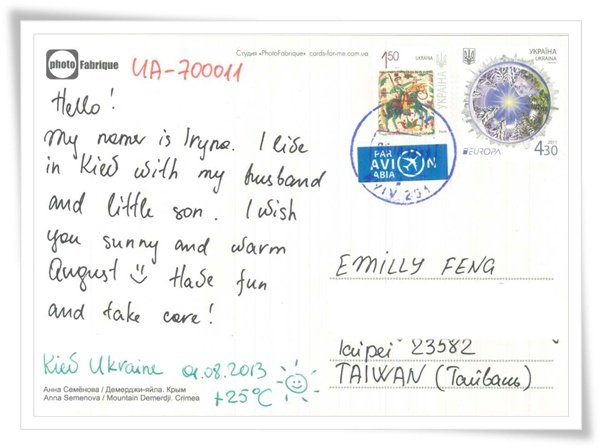 photo Fabrique
Студия «PhotoFabrique» cards-for-me.com.ua
UA-700011
1.50
УКРАЇНА
UKRAINA
УКРАЇНА
UKRAINE
EUROPA
2011
4.30
PAR
AVION
АВІА
Hello!
My name is Iryna. I live
in Kiev with my husband
and little son. I wish
you sunny and warm
August Have fun
and take care!
EMILLY FENG
Taipei 23582
TAIWAN (Тайвань)
Kiev Ukraine 01.08.2013
+25°C
Анна Семёнова / Демерджи-яйла. Крым
Anna Semenova / Mountain Demerdji. Crimea